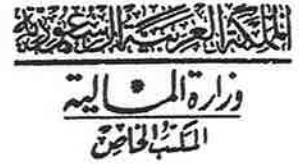 المملكة العربية السعودية
وزارة المالية
المكتب الخاص